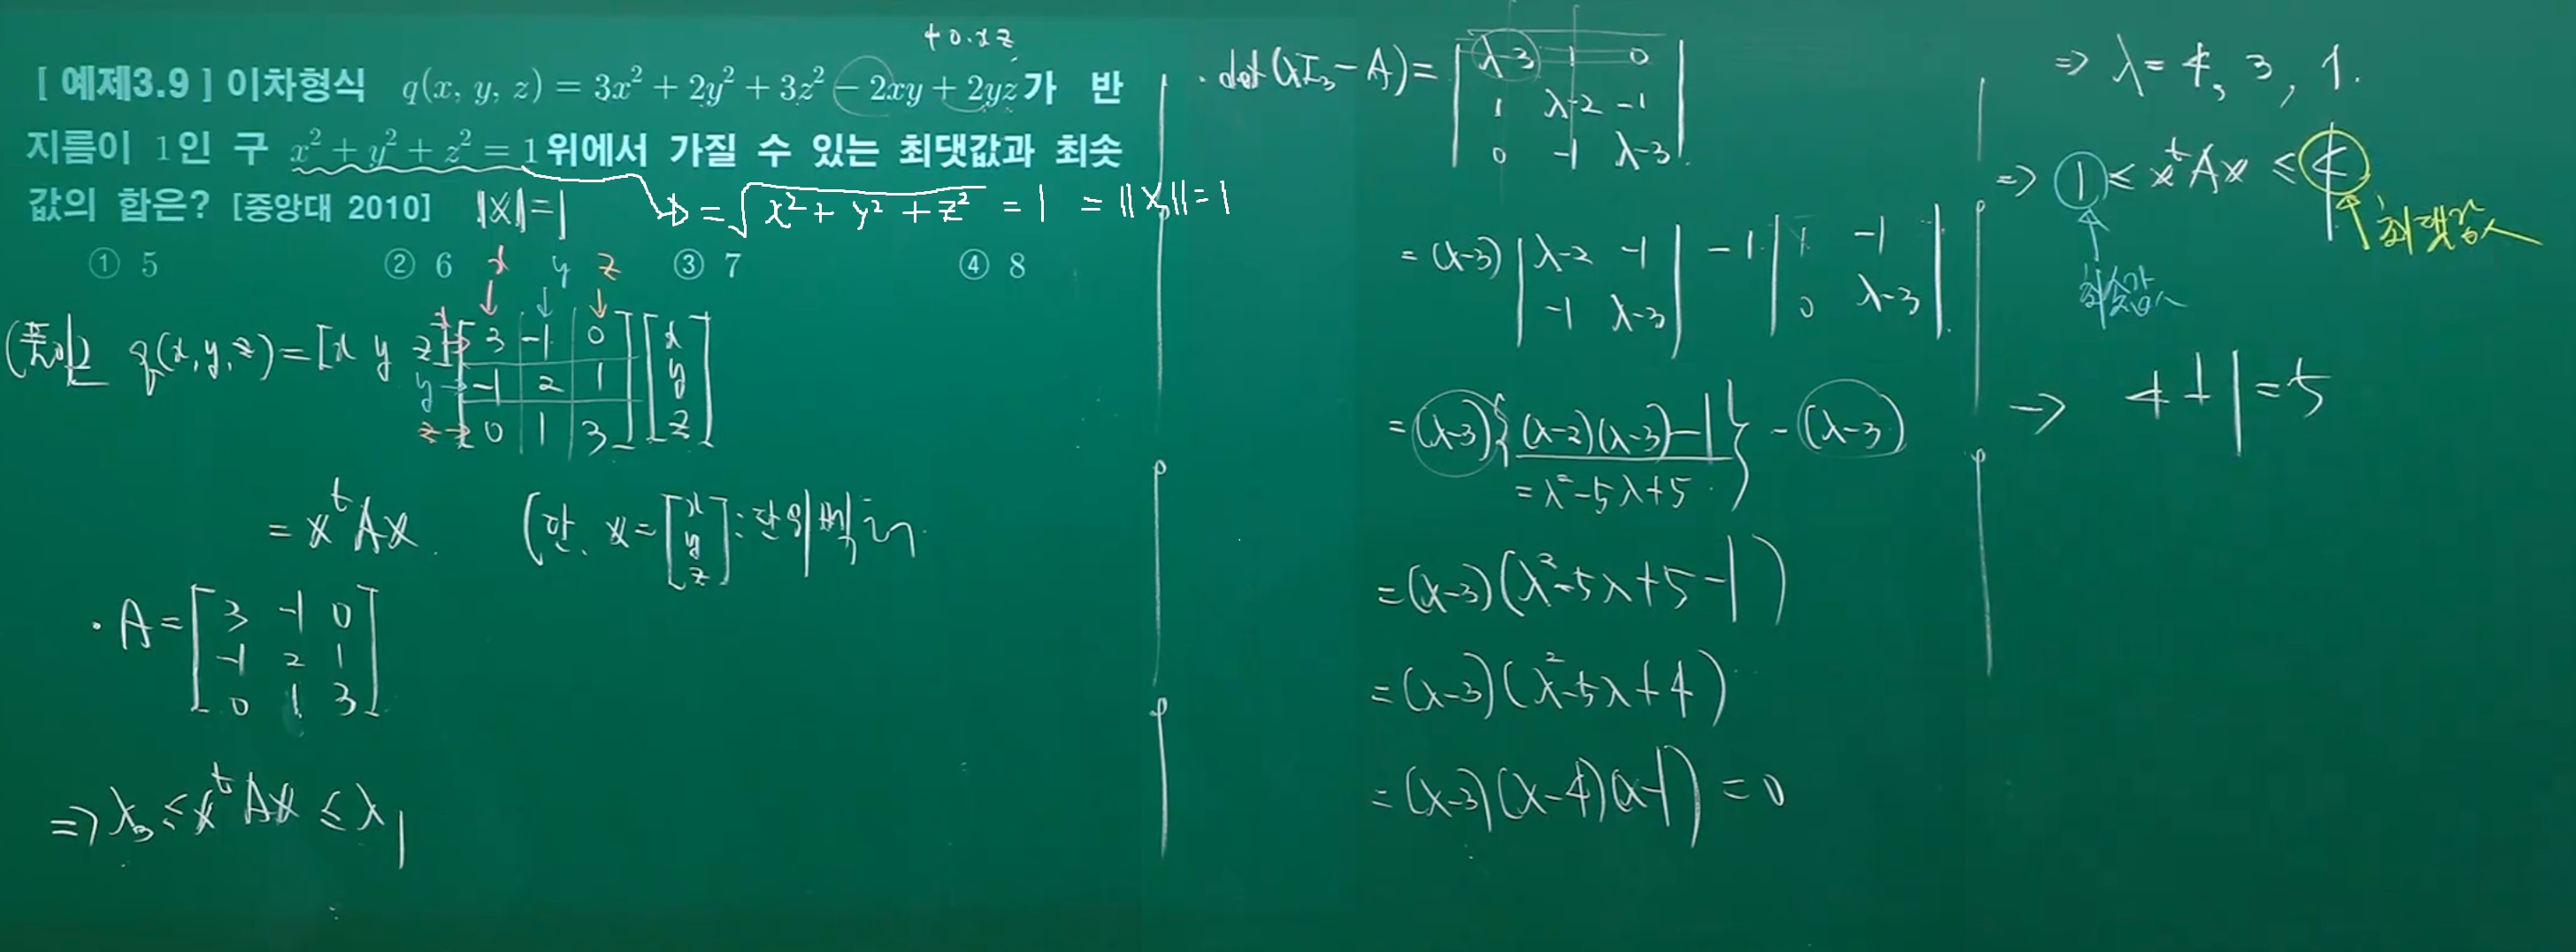 + 0·xz
[ 예제3.9 ] 이차형식 q(x, y, z) = 3x² + 2y² + 3z² − 2xy + 2yz가 반
지름이 1인 구 x² + y² + z² = 1위에서 가질 수 있는 최댓값과 최솟
값의 합은? [중앙대 2010] |x|=1 ⇒ = √(x² + y² + z²) = 1 = ||x|| = 1
① 5 ② 6 ③ 7 ④ 8
x y z
(풀이) q(x, y, z) = [x y z] [3 -1 0] [x]
y → [-1 2 1] [y]
z → [0 1 3] [z]
= xᵗAx (단, x = [x y z] : 단위벡터
· A = [3 -1 0]
[-1 2 1]
[0 1 3]
⇒ λ₃ ≤ xᵗAx ≤ λ₁
· det(λI₃ − A) = | λ-3 1 0 |
| 1 λ-2 -1 |
| 0 -1 λ-3 |
= (λ-3) | λ-2 -1 | - 1 | 1 -1 |
| -1 λ-3 | | 0 λ-3 |
= (λ-3) { (λ-2)(λ-3) - 1 } - (λ-3)
= λ² - 5λ + 5
= (λ-3)(λ² - 5λ + 5 - 1)
= (λ-3)(λ² - 5λ + 4)
= (λ-3)(λ-4)(λ-1) = 0
⇒ λ = 4, 3, 1.
⇒ 1 ≤ xᵗAx ≤ 4
최댓값
최솟값
→ 4 + 1 = 5